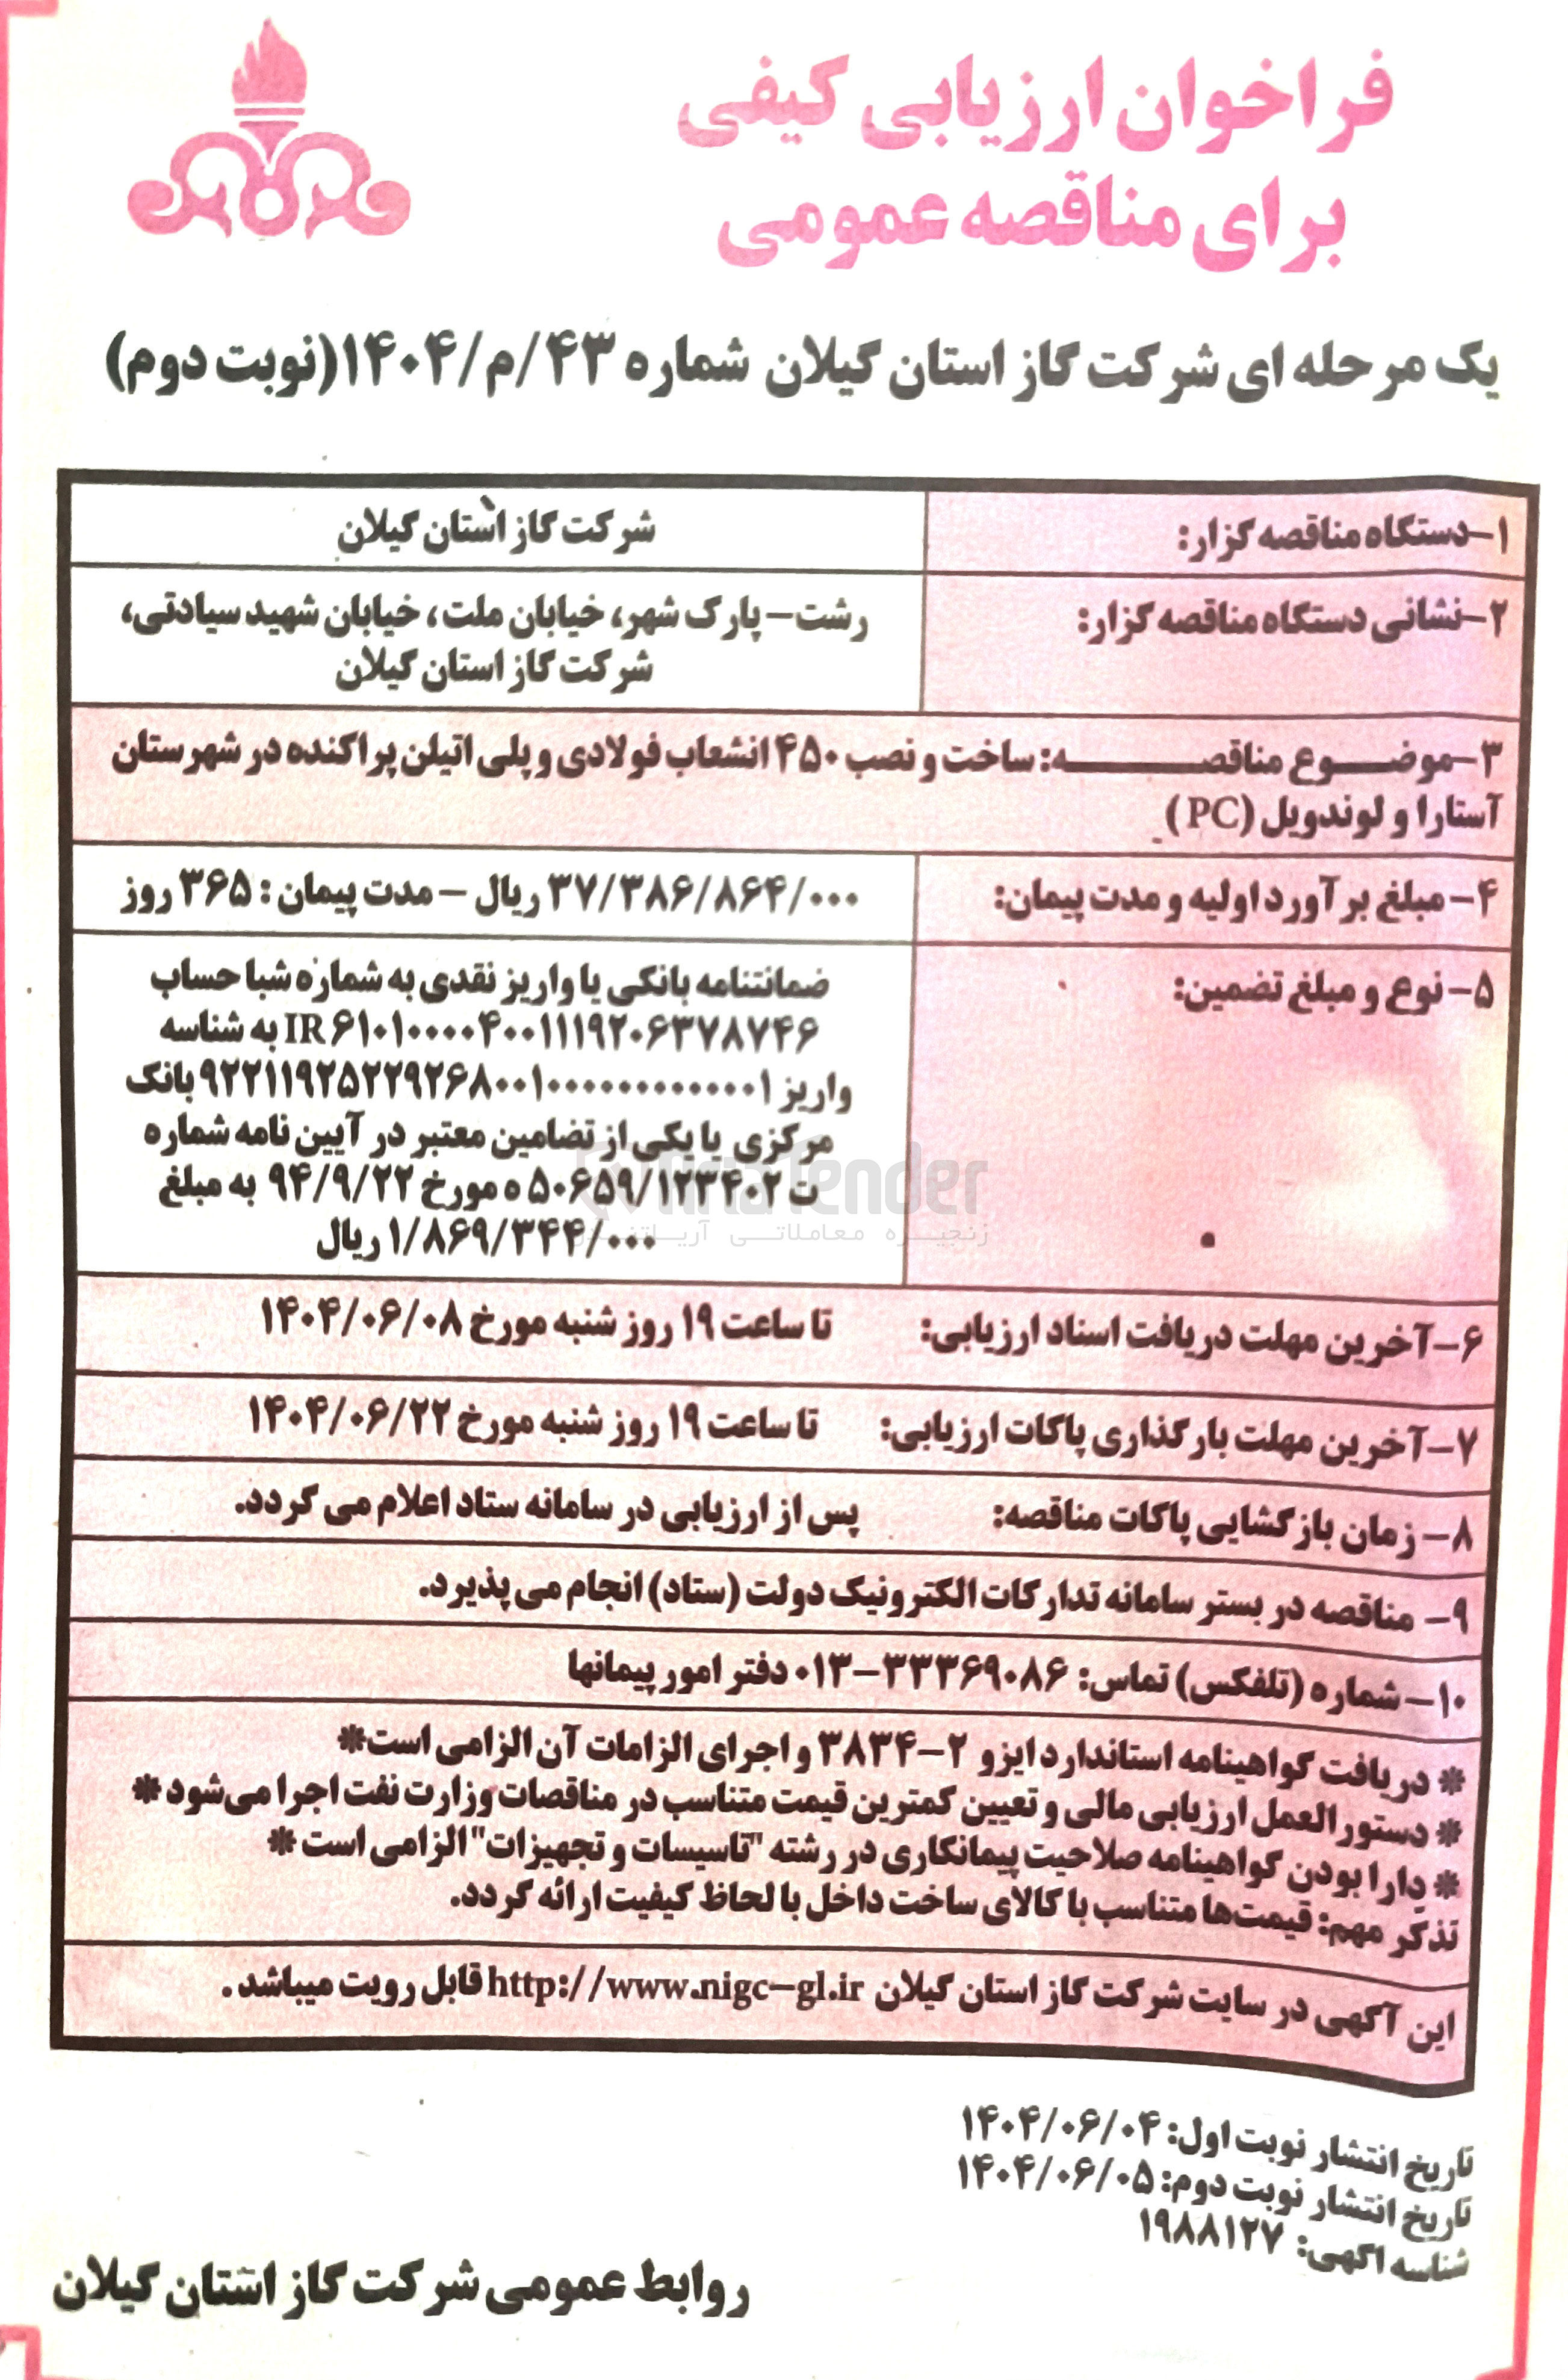 فراخوان ارزیابی کیفی
برای مناقصه عمومی
یک مرحله ای شرکت گاز استان گیلان شماره ۴۳/م/۱۴۰۴(نوبت دوم)
۱-دستگاه مناقصه گزار: شرکت گاز استان گیلان
۲-نشانی دستگاه مناقصه گزار: رشت- پارک شهر، خیابان ملت، خیابان شهید سیادتی،
شرکت گاز استان گیلان
۳-موضوع مناقصه: ساخت و نصب ۴۵۰ انشعاب فولادی و پلی اتیلن پراکنده در شهرستان
آستارا و لوندویل (PC)
۴- مبلغ برآورد اولیه و مدت پیمان: ۳۷/۳۸۶/۸۶۴/۰۰۰ ریال - مدت پیمان : ۳۶۵ روز
۵- نوع و مبلغ تضمین: ضمانتنامه بانکی یا واریز نقدی به شماره شبا حساب
IR ۶۱۰۱۰۰۰۰۴۰۰۱۱۱۹۲۰۶۳۷۸۷۴۶ به شناسه
واریز ۹۲۲۱۱۹۲۵۲۲۹۲۶۸۰۰۱۰۰۰۰۰۰۰۰۰۰۰۰۱ بانک
مرکزی یا یکی از تضامین معتبر در آیین نامه شماره
۱۲۳۴۰۲/ت۵۰۶۵۹ ه مورخ ۹۴/۹/۲۲ به مبلغ
۱/۸۶۹/۳۴۴/۰۰۰ ریال
۶-آخرین مهلت دریافت اسناد ارزیابی: تا ساعت ۱۹ روز شنبه مورخ ۱۴۰۴/۰۶/۰۸
۷-آخرین مهلت بارگذاری پاکات ارزیابی: تا ساعت ۱۹ روز شنبه مورخ ۱۴۰۴/۰۶/۲۲
۸- زمان بازگشایی پاکات مناقصه: پس از ارزیابی در سامانه ستاد اعلام می گردد.
۹- مناقصه در بستر سامانه تدارکات الکترونیک دولت (ستاد) انجام می پذیرد.
۱۰- شماره (تلفکس) تماس: ۳۳۳۶۹۰۸۶-۰۱۳ دفتر امور پیمانها
* دریافت گواهینامه استاندارد ایزو ۲-۳۸۳۴ و اجرای الزامات آن الزامی است*
* دستورالعمل ارزیابی مالی و تعیین کمترین قیمت متناسب در مناقصات وزارت نفت اجرا می‌شود *
* دارا بودن گواهینامه صلاحیت پیمانکاری در رشته "تاسیسات و تجهیزات" الزامی است *
تذکر مهم: قیمت‌ها متناسب با کالای ساخت داخل با لحاظ کیفیت ارائه گردد.
این آگهی در سایت شرکت گاز استان گیلان http://www.nigc-gl.ir قابل رویت میباشد .
تاریخ انتشار نوبت اول: ۱۴۰۴/۰۶/۰۴
تاریخ انتشار نوبت دوم: ۱۴۰۴/۰۶/۰۵
شناسه اگهی: ۱۹۸۸۱۲۷
روابط عمومی شرکت گاز استان گیلان
AriaTender
زنجیره معاملاتی آریاتندر